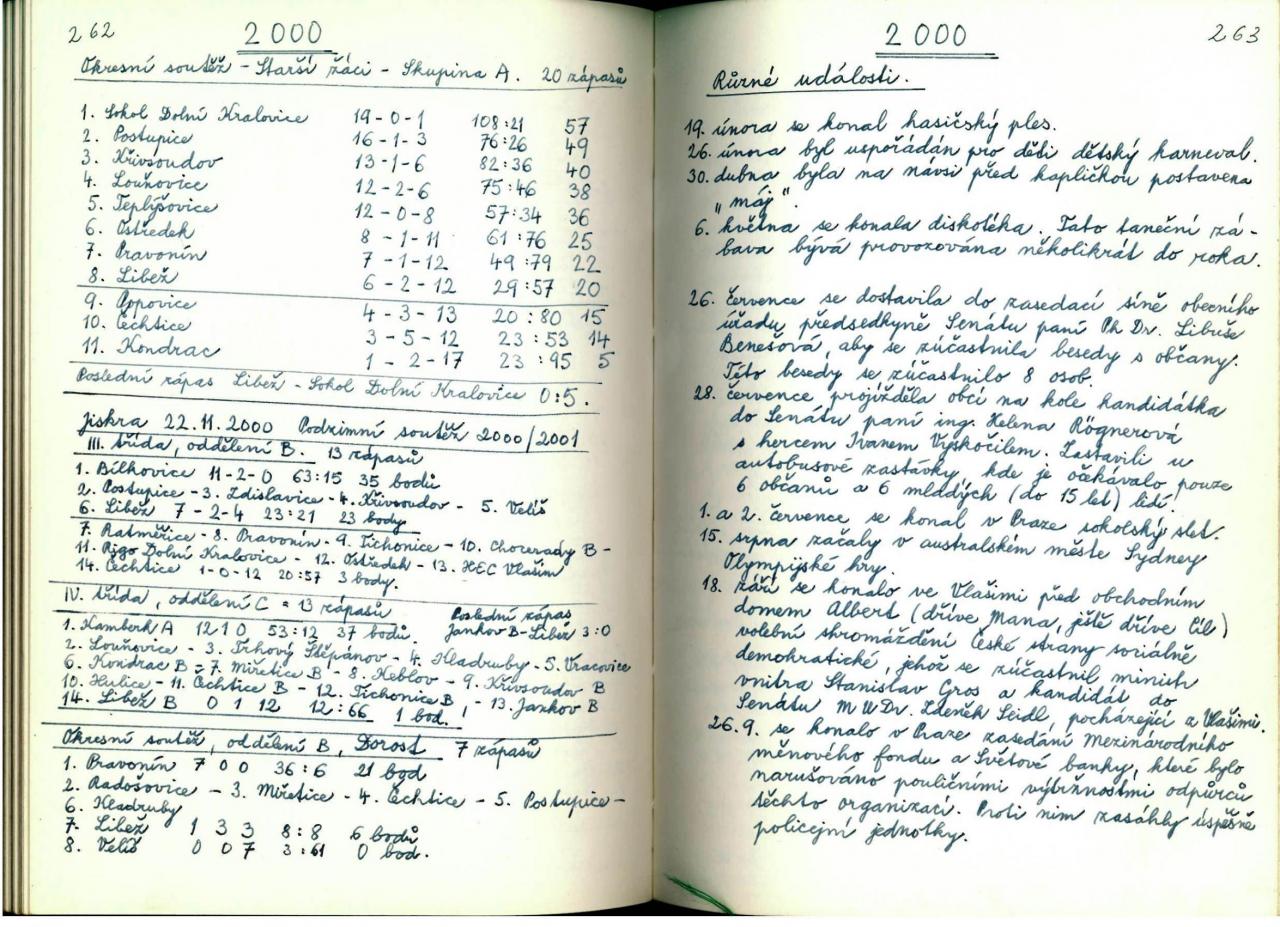 262
2000
Okresní soutěž - Starší žáci - Skupina A. 20 zápasů
1. Sokol Dolní Kralovice 19-0-1 108:21 57
2. Postupice 16-1-3 76:26 49
3. Křivsoudov 13-1-6 82:36 40
4. Louňovice 12-2-6 75:46 38
5. Teplýšovice 12-0-8 57:34 36
6. Ostředek 8-1-11 61:76 25
7. Pravonín 7-1-12 49:79 22
8. Libež 6-2-12 29:57 20
9. Popovice 4-3-13 20:80 15
10. Čechtice 3-5-12 23:53 14
11. Kondrac 1-2-17 23:95 5
Poslední zápas Libež - Sokol Dolní Kralovice 0:5.
Jiskra 22.11.2000 Podzimní soutěž 2000/2001
III. třída, oddělení B. 13 zápasů
1. Bílkovice 11-2-0 63:15 35 bodů
2. Postupice - 3. Zdislavice - 4. Křivsoudov - 5. Veliš
6. Libež 7-2-4 23:21 23 body
7. Ratměřice - 8. Pravonín - 9. Tichonice - 10. Chocerady B -
11. Rigo Dolní Kralovice - 12. Ostředek - 13. HFC Vlašim
14. Čechtice 1-0-12 20:57 3 body.
IV. třída, oddělení C = 13 zápasů Poslední zápas
1. Kamberk A 12 1 0 53:12 37 bodů. Jankov B-Libež 3:0
2. Louňovice - 3. Trhový Štěpánov - 4. Hladruby - 5. Vracovice
6. Kondrac B - 7. Miřetice B - 8. Keblov - 9. Křivsoudov B
10. Hulice - 11. Čechtice B - 12. Tichonice B, - 13. Jankov B
14. Libež B 0 1 12 12:66 1 bod.
Okresní soutěž, oddělení B, Dorost 7 zápasů
1. Pravonín 7 0 0 36:6 21 bod
2. Radošovice - 3. Miřetice - 4. Čechtice - 5. Postupice -
6. Hladruby
7. Libež 1 3 3 8:8 6 bodů
8. Veliš 0 0 7 3:61 0 bod.
2000
263
Různé události.
19. února se konal hasičský ples.
26. února byl uspořádán pro děti dětský karneval.
30. dubna byla na návsi před kapličkou postavena
„máj".
6. května se konala diskotéka. Tato taneční zá-
bava bývá provozována několikrát do roka.
26. července se dostavila do zasedací síně obecního
úřadu předsedkyně Senátu paní Ph Dr. Libuše
Benešová, aby se zúčastnila besedy s občany.
Této besedy se zúčastnilo 8 osob.
28. července projížděla obcí na kole kandidátka
do Senátu paní ing. Helena Rögnerová
s hercem Ivanem Vyskočilem. Zastavili u
autobusové zastávky, kde je očekávalo pouze
6 občanů a 6 mladých (do 15 let) lidí.
1. a 2. července se konal v Praze sokolský slet.
15. srpna začaly v australském městě Sydney
Olympijské hry.
18. září se konalo ve Vlašimi před obchodním
domem Albert (dříve Mana, ještě dříve Cíl)
volební shromáždění České strany sociálně
demokratické, jehož se zúčastnil ministr
vnitra Stanislav Gros a kandidát do
Senátu M U Dr. Zdeněk Seidl, pocházející z Vlašimi.
26.9. se konalo v Praze zasedání Mezinárodního
měnového fondu a Světové banky, které bylo
narušováno pouličními výtržnostmi odpůrců
těchto organizací. Proti nim zasáhly úspěšně
policejní jednotky.